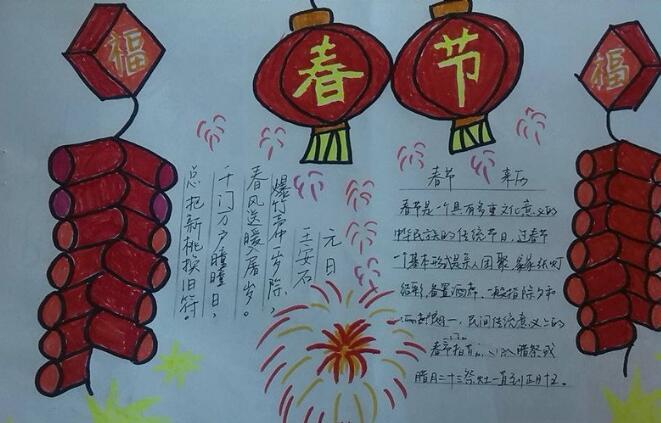 福
春节
福
元日
王安石
爆竹声中一岁除，
春风送暖入屠岁。
千门万户瞳瞳日，
总把新桃换旧符。
春节 来历
春节是一个具有多重文化意义的
民族的传统节日，过春节
一个基本形式是亲人团聚，张灯
结彩，备置酒席，一般指除夕和
初一，民间传统意义上的
春节指 腊祭或
腊月二十三祭灶一直到正月十五。